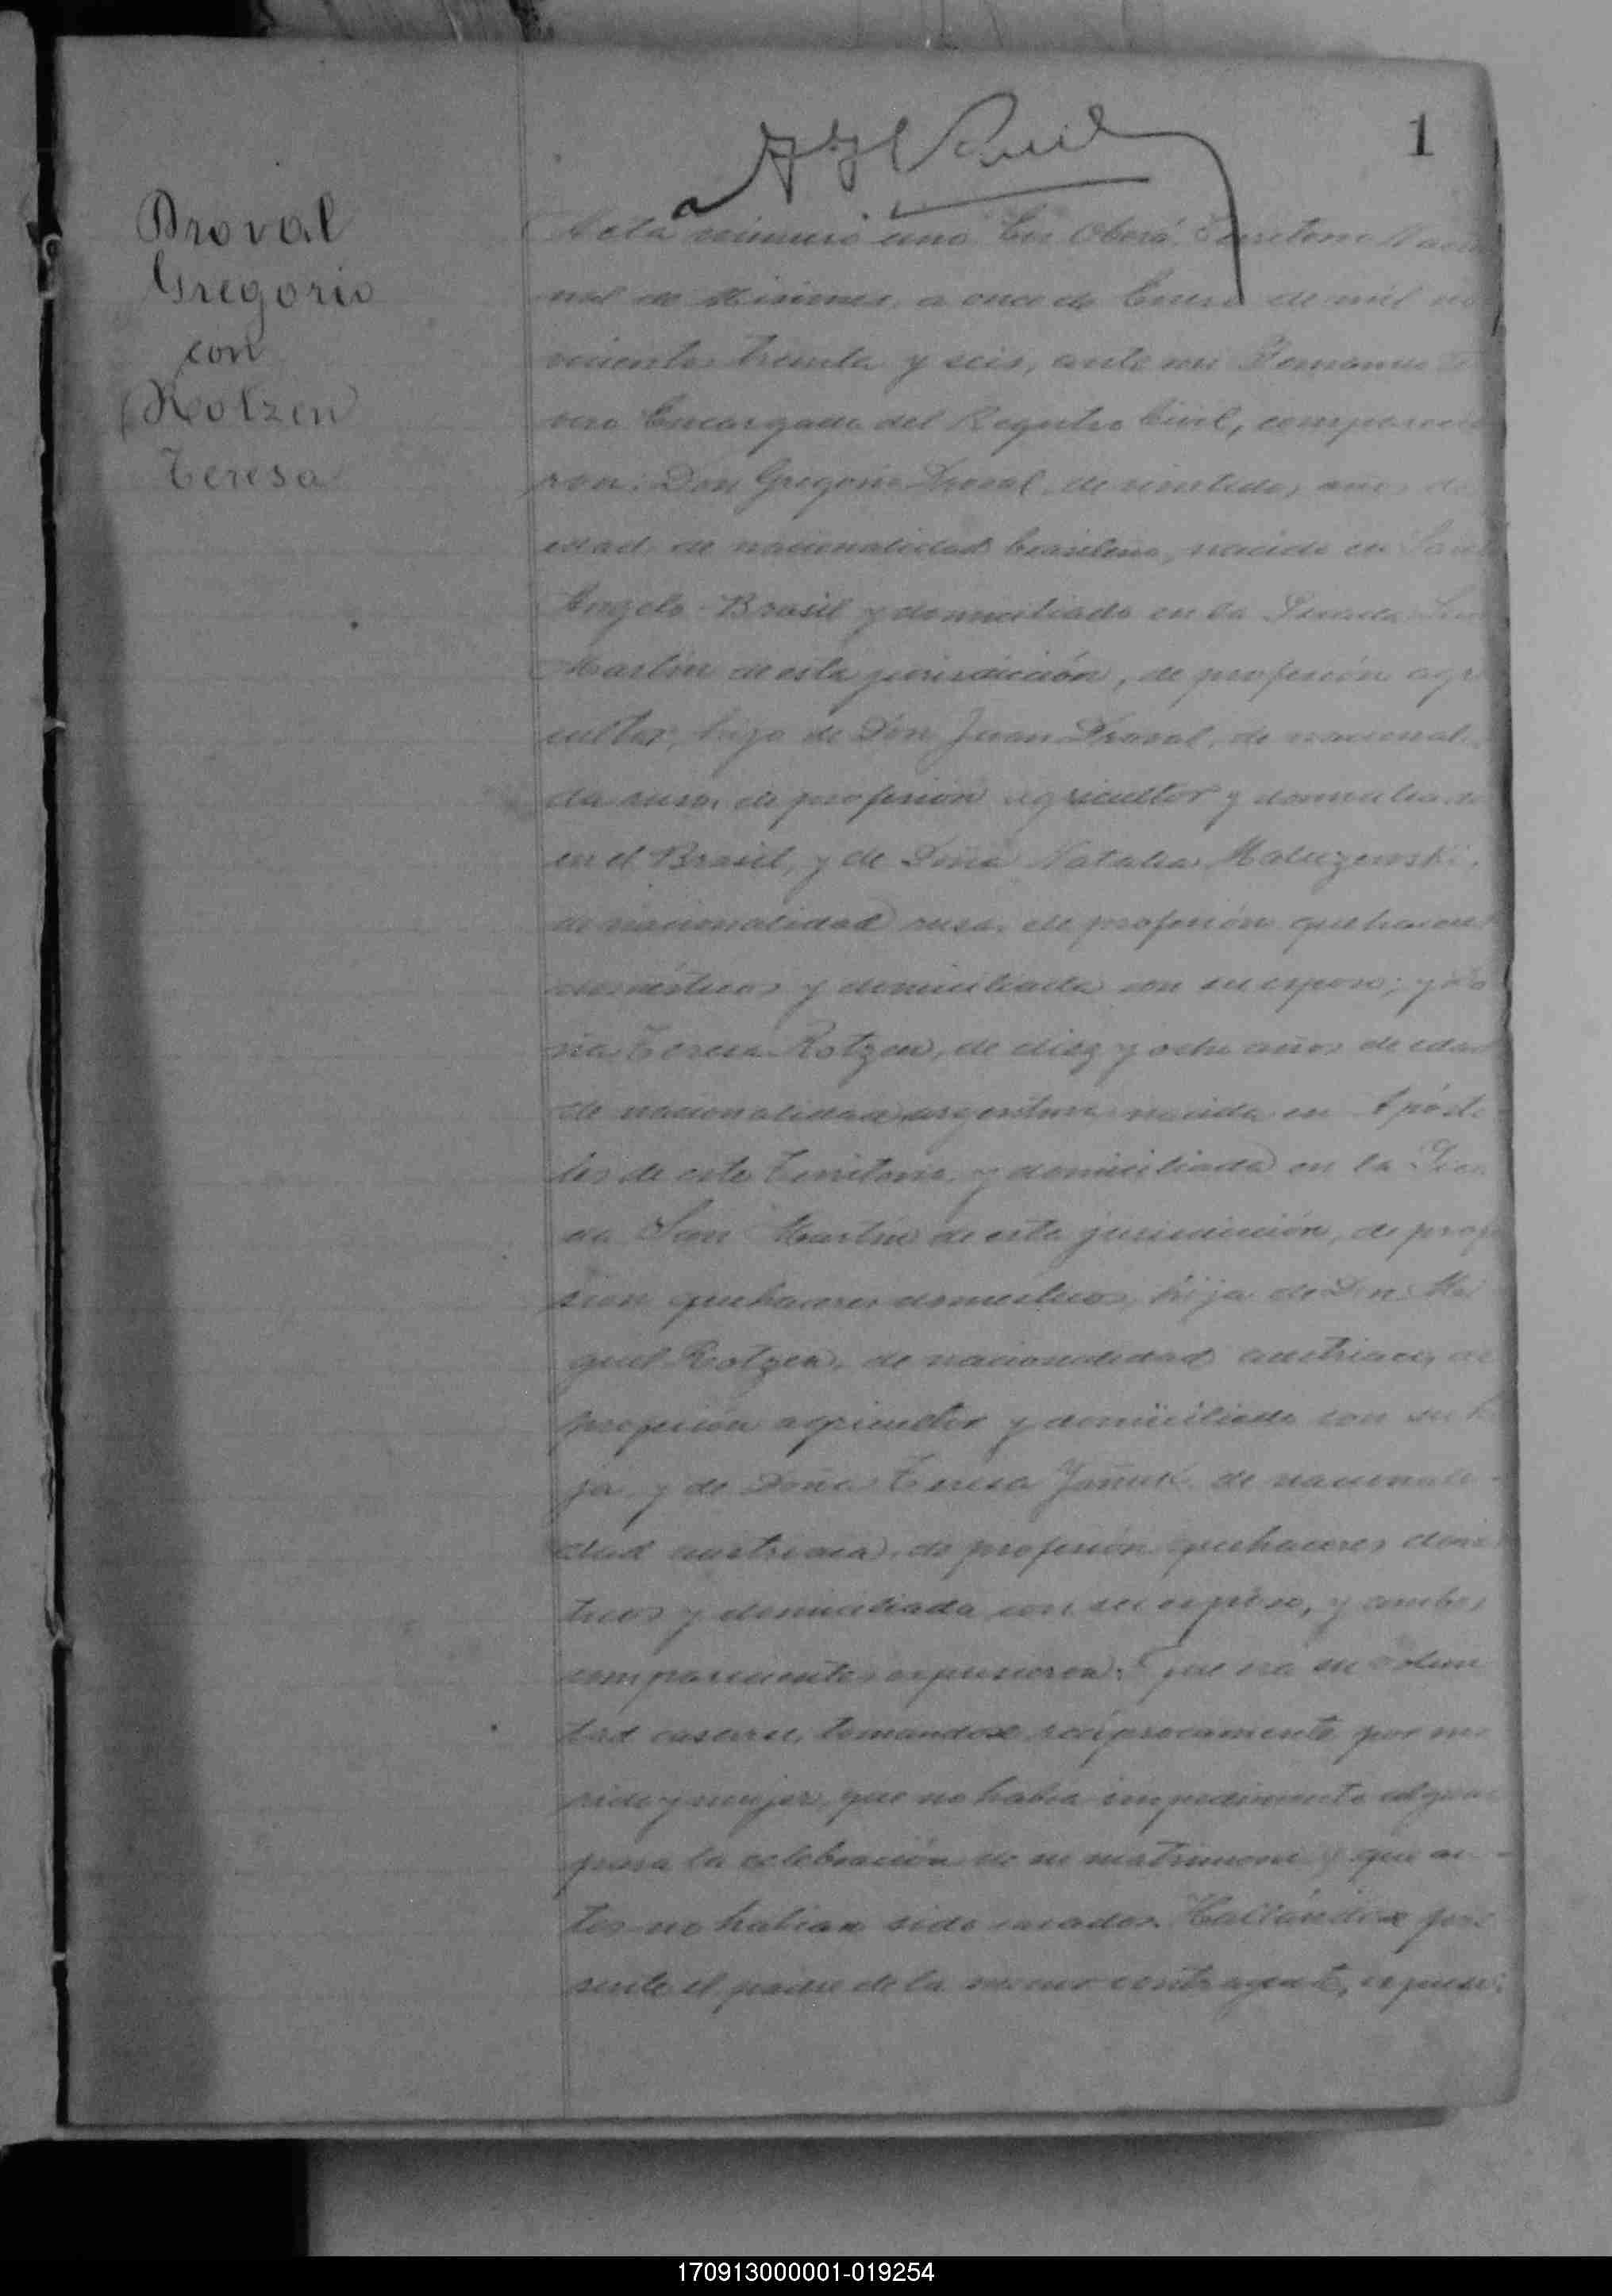 1
Droval
Gregorio
con
Rotzen
Teresa
Acta número uno. En Oberá, Territorio Nacio
nal de Misiones, a once de Enero de mil no
vecientos treinta y seis, ante mi
Encargado del Registro Civil, comparecie
ron: Don Gregorio Droval, de veintidos años de
edad, de nacionalidad brasilena, nacido en
Angelo-Brasil y domiciliado en la Picada San
Martín de esta jurisdicción, de profesión agri
cultor, hijo de Don Juan Droval, de nacionali
da rusa, de profesión agricultor y domiciliado
en el Brasil, y de Doña Natalia
de nacionalidad rusa, de profesión quehaceres
domésticos y domiciliada con su esposo; y Do
ña Teresa Rotzen, de diez y ocho años de edad
de nacionalidad argentina nacida en Apósto
les de este Territorio y domiciliada en la Pica
da San Martín de esta jurisdicción, de profe
sion quehaceres domesticos, hija de Don Mi
guel Rotzen, de nacionalidad austriaca, de
profesión agricultor y domiciliado con su hi
ja y de Doña Teresa de nacionali-
dad austriaca, de profesión quehaceres domés
ticos y domiciliada con su esposo, y ambos
comparecientes expusieron: Que era su volun
tad casarse, tomandose recíprocamente por ma
rido y mujer, que no habia impedimento alguno
para la celebración de su matrimonio y que an-
tes no habian sido casados. Hallándose pre
sente el padre de la menor contrayente, expuso:
170913000001-019254